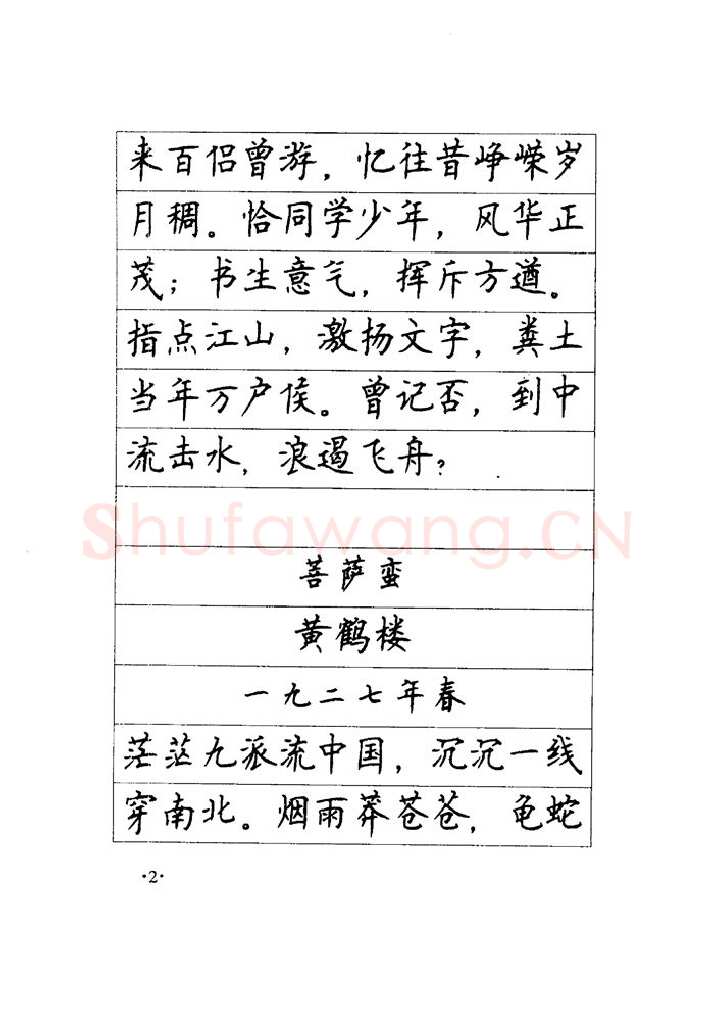 来百侣曾游，忆往昔峥嵘岁
月稠。恰同学少年，风华正
茂；书生意气，挥斥方遒。
指点江山，激扬文字，粪土
当年万户侯。曾记否，到中
流击水，浪遏飞舟？
Shufawang.CN
菩萨蛮
黄鹤楼
一九二七年春
茫茫九派流中国，沉沉一线
穿南北。烟雨莽苍苍，龟蛇
·2·